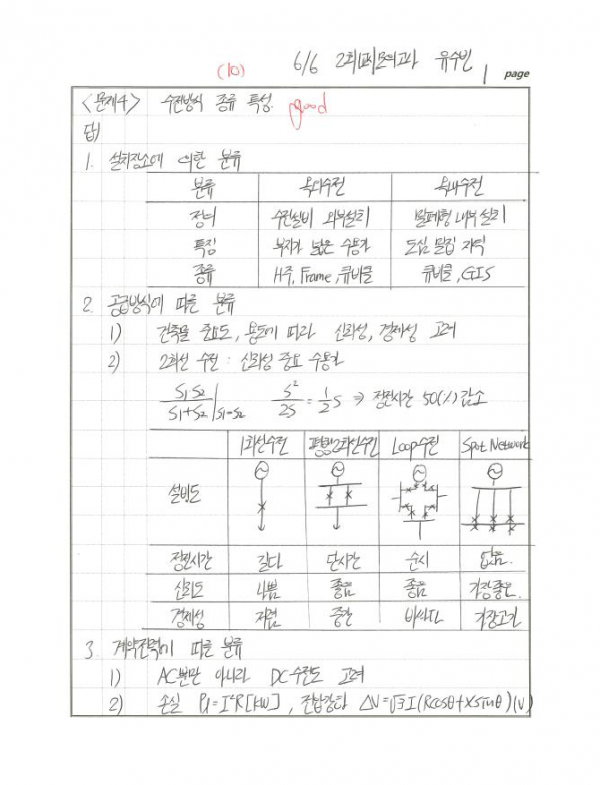 6/6 2회 모의고사 유수빈 1 page
(10)
<문제4> 수전방식 종류 특성. good
답)
1. 설치장소에 의한 분류
분류 옥외수전 옥내수전
정의 수전설비 외부설치 밀폐형 내부 설치
특징 부지가 넓은 수용가 도심 밀집 지역
종류 H주, Frame, 큐비클 큐비클, GIS
2. 공급방식에 따른 분류
1) 건축물 중요도, 용도에 따라 신뢰성, 경제성 고려
2) 2회선 수전 : 신뢰성 중요 수용가
S1 S2 / S1+S2 | S1=S2 S² / 2S = 1/2 S ⇒ 정전시간 50(%) 감소
1회선수전 평행2회선수전 Loop수전 Spot Network
설비도
정전시간 길다 단시간 순시 없음.
신뢰도 나쁨 좋음 좋음 가장좋은.
경제성 저렴 중간 비싸다 가장고가
3. 계약전력에 따른 분류
1) AC뿐만 아니라 DC수전도 고려
2) 손실 Pl = I²R [kW], 전압강하 ΔV=√3 I (Rcosθ+Xsinθ)(V)